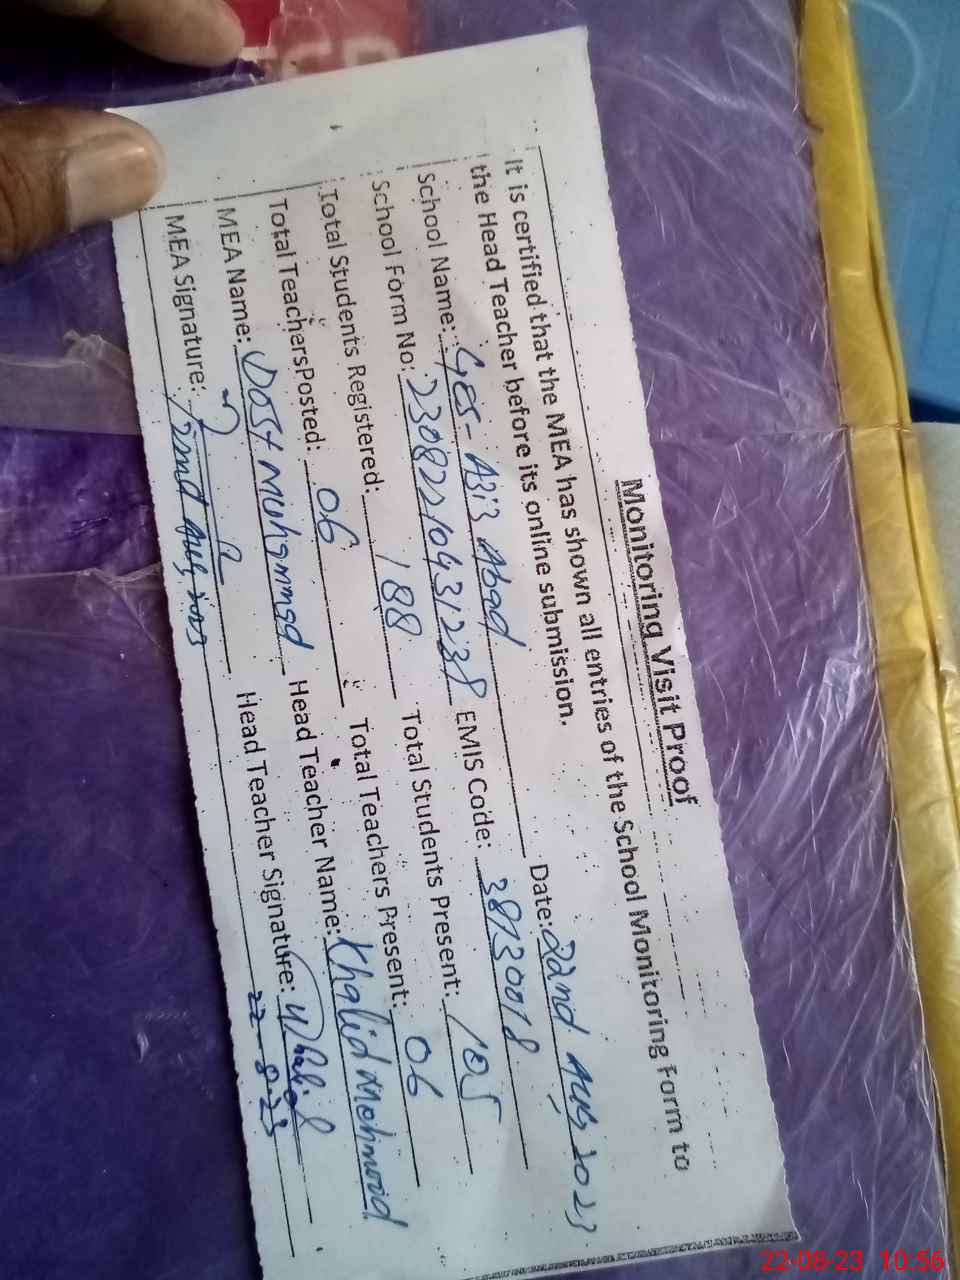 Monitoring Visit Proof
It is certified that the MEA has shown all entries of the School Monitoring Form to
the Head Teacher before its online submission.
Date: 22nd Aug, 2023
School Name: Ges- Asif Abad
School Form No: 23082210431238 EMIS Code: 38130018
Total Students Registered: 188 Total Students Present: 105
Total Teachers Posted: 06 Total Teachers Present: 06
MEA Name: Dost Mohammad Head Teacher Name: Khalid Mehmood
MEA Signature: 22nd Aug, 2023 Head Teacher Signature: Khalid
22-8-23
22-08-23 10:56